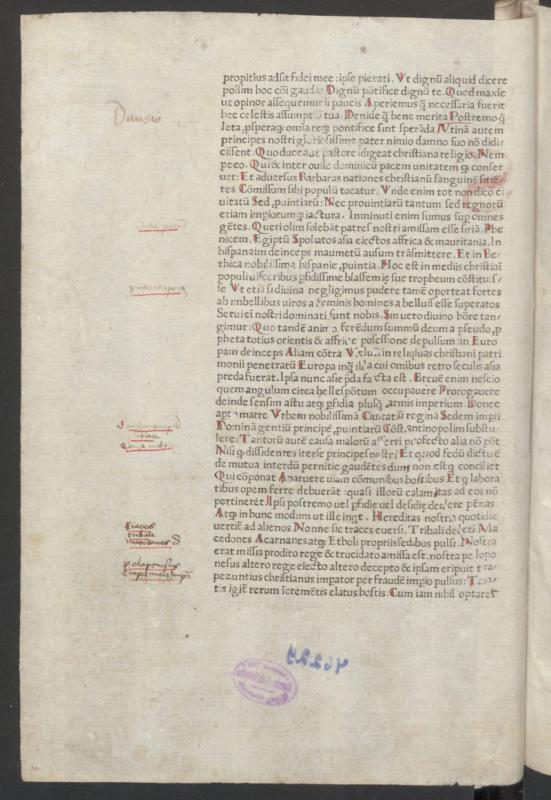 propitius adsit fidei mee : ipse pietati. Vt dignū aliquid dicere
possim hoc cōi gaudio Dignū pōtifice dignū te. Quod maxīe
ut opinor assequemur si paucis Aperiemus q̄ necessaria fuerit
hec celestis assumptio tua. Deinde q̄ bene merita Postremo q̄
leta, psperaq; omīa te pontifice sint sperāda Vtinā autem
principes nostri gloriosissime pater nimio damno suo nō didi
cissent. Quo duce aut pastore idigeat christiana religio. Nem
pe eo. Qui & inter ouile dominicū pacem unitatem q; conser
uet: Et aduersus Barbaras nationes christianū sanguinē sitiē
tes Cōmissum sibi populū tueatur. Vnde enim tot non dico ci
uitatū Sed , puintiarū: Nec prouintiarū tantum sed regnorū
etiam impiorumq; iactura. In minuti enim sumus sup omnes
gētes. Queri olim solebāt patres nostri amissam esse siriā Phe
nicem. Egiptū Spoliatos asia eiectos affrica & mauritania. In
hispaniam deinceps maumetū ausum trāsmittere. Et in Be
thica nobilissima hispanie , puintia. Hoc est in mediis christiai
populi uisceribus pfidissime blasfemie sue tropheum cōstitui s
se Vt etiā si diuina negligimus pudere tamē oporteat fortes
ab imbellibus uiros a feminis homines a belluis esse superatos
Serui ei nostri dominati sunt nobis. Sin uero diuino hōre tan
gimur: Quo tandē animo ferēdum summū deum a pseudo , p
pheta totius orientis & affrice posessione depulsum : in Euro
pam deinceps Aliam cōtra Velut in reliquias christiani patri
monii penetratū Europa inq̄ illa cui omibus retro seculis asia
preda fuerat. Ipsa nunc asie pda facta est. Breuē enim nescio
quem angulum circa hellespōtum occupauere Prorogauere
deinde sensim astu atq; pfidia plusq̄ armis imperium. Donec
Vrbem nobilissimā Ciuitatū reginā Sedem impii
Dominā gentiū principē , puintiarū Cōstantinopolim substu
lere: Tantorū autē causa malorū afferri profecto alia nō pōt
Nisi q; dissidentes iter se principes nostri Et quod fedū dictu ē
de mutua interdū pernitie gaudētes dum non est q; conciliet
Qui cōponat Aparuere uiam cōmunibus hostibus Et q; labora
tibus opem ferre debuerāt : quasi illorū calamitas ad eos nō
pertineret Ipsi postremo uel pfidie uel desidie dedere penas.
Atq; in hunc modum ut ille ingt. Hereditas nostra quotidie
uertit ad alienos Nonne sic traces euersi. Tribali deleti Ma
cedones Acarnanes atq; Etholi propriis sedibus pulsi. Nostra
erat misia prodito rege & trucidato amissa est. nostra pelopo
nesus altero rege eiecto altero decepto & ipsam eripuit tra
pezuntius christianus impator per fraudē impio pulsus:
tis igit̄ rerum īcremētis elatus hostis: Cum iam nihil optaret
46229